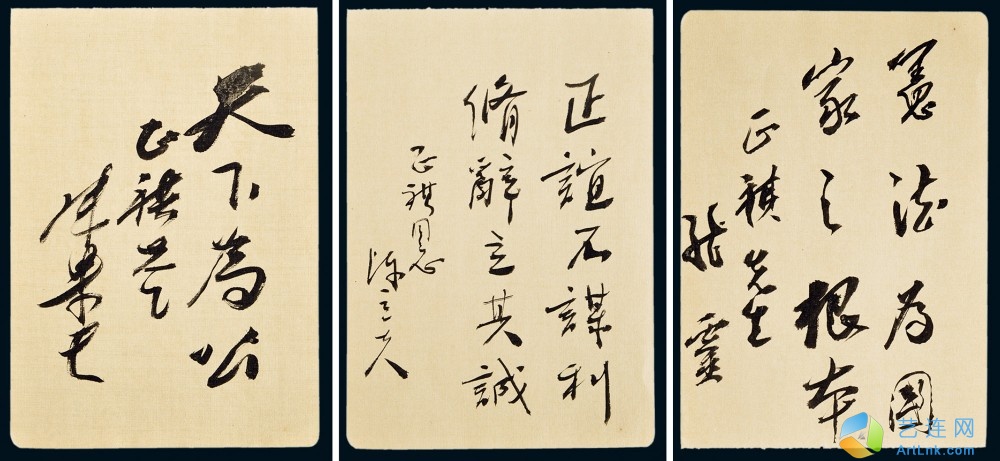 天下為公
正祺
正誼不謀利
脩辭立其誠
正祺同志
陳立夫
憲法為國
家之根本
正祺先生
艺连网
ArtLnk.com